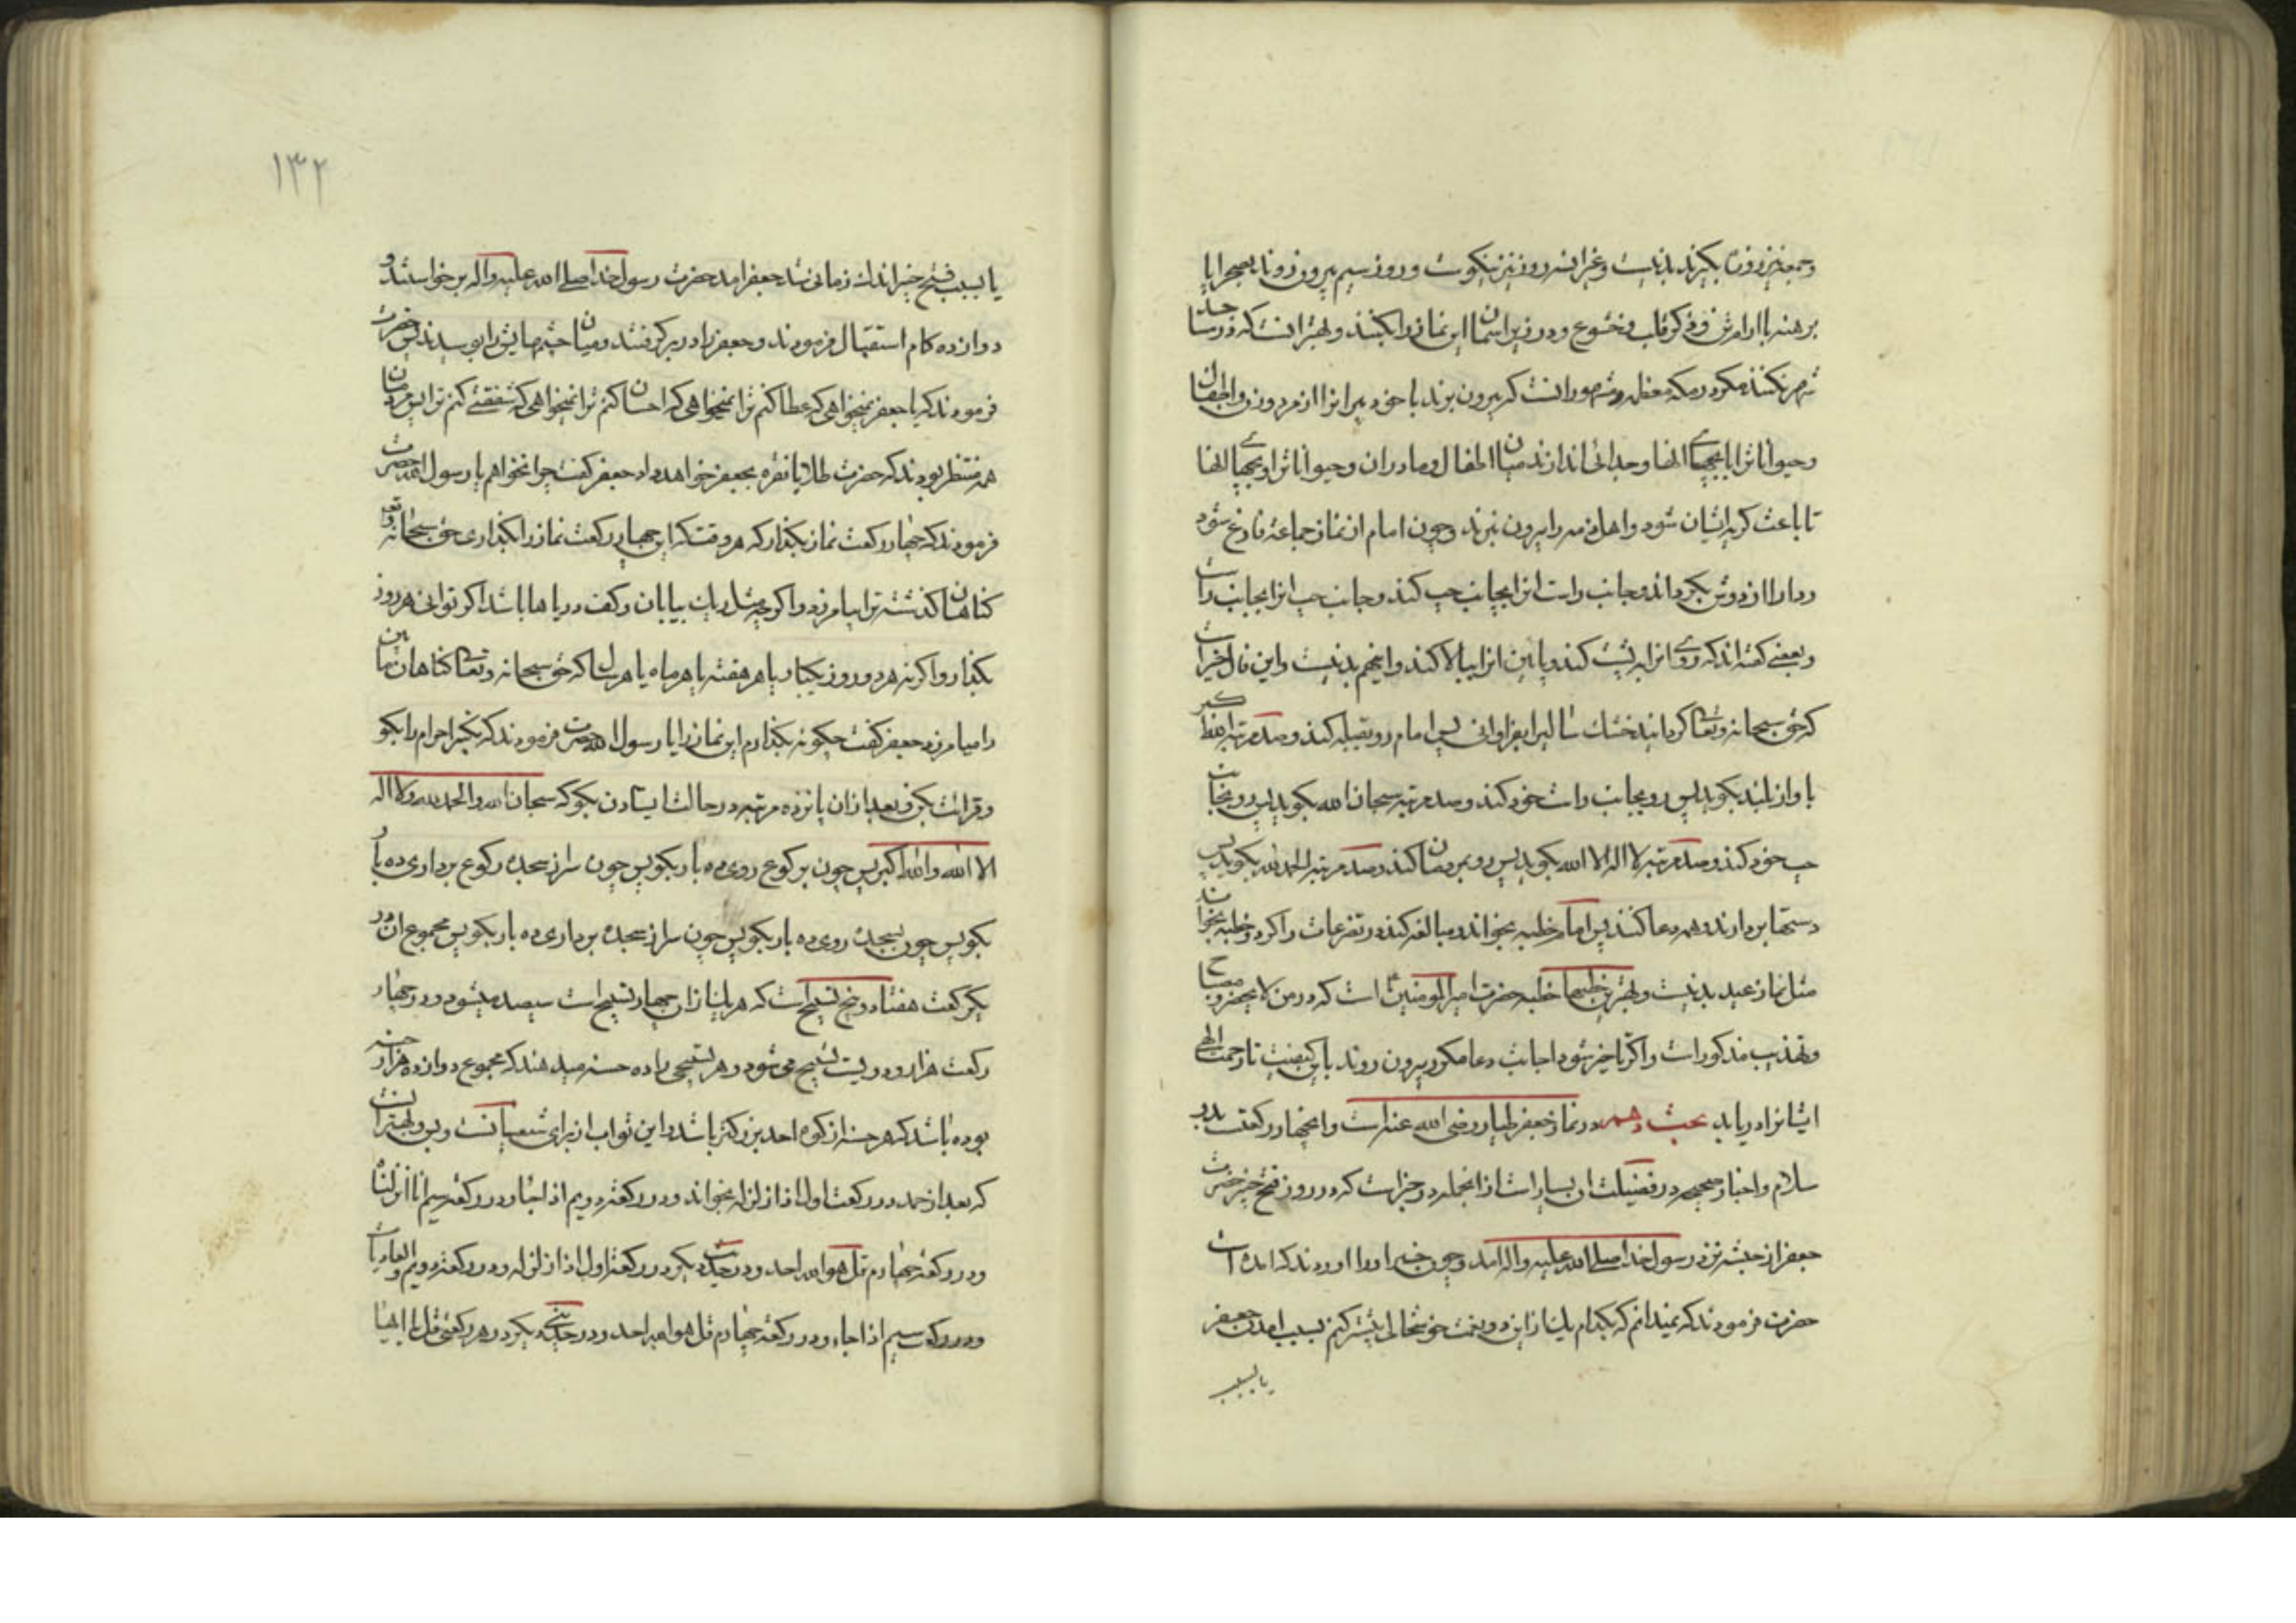 و جمعه نیز روزه بگیرند بد نیست و غیر این سه روز نیز نیکوست و روز سیم بیرون روند بصحرا با پا
برهنه باارام تن و ذکر قلب و خشوع و در زیر اسمان این نماز را بکنند و بهتر انست که در مساجد
شهر نکنند مکر در مکه معظمه و مشهور انست که بیرون برند با خود پیرانرا از مرد و زن و اطفال
و حیواناترا با بچهای انها و جدائی اندازند میان اطفال و مادران و حیواناترا و بچهای انها
تا باعث کریه ایشان شود و اهل ذمه را بیرون نبرند و چون امام از نماز جماعة فارغ شود
ردا را از دوش بکرداند و جانب راست انرا بجانب چپ کند و جانب چپ انرا بجانب راست
و بعضی کفته اند که روی انرا به پشت کند و پائین انرا ببالا کند و اینهم بد نیست و این فال خیر است
که حق سبحانه و تعالی کرداند خشک سالی را بفراوانی پس امام رو بقبله کند و صد مرتبه الله اکبر
باواز بلند بکوید پس رو بجانب راست خود کند و صد مرتبه سبحان الله بکوید پس رو بجانب
چپ خود کند و صد مرتبه لا اله الا الله بکوید پس رو بمردمان کند و صد مرتبه الحمد لله بکوید پس
دستها بردارند و همه دعا کنند پس امام خطبه بخواند و مبالغه کند در تضرعات و اکر دو خطبه بخواند
مثل نماز عید بد نیست و بهترین خطبها خطبه حضرت امیر المومنین است که در من لا یحضر و مصباح
و تهذیب مذکور است و اکر تاخیر شود اجابت دعا مکرر بیرون روند باین کیفیت تا رحمت الهی
ایشانرا دریابد بحث دهم در نماز جعفر طیار رضی الله عنه است و ان چهار رکعتست بدو
سلام و اخبار صحیحه در فضیلت ان بسیار است از انجمله در خبر است که در روز فتح خیبر حضرت
جعفر از حبشه نزد رسول خدا صلی الله علیه و اله امد و چون خبر او را اوردند که امده است
حضرت فرمودند که نمیدانم که بکدام یک از این دو نعمت خوشحالی بیشتر کنم بسبب امدن جعفر
یا بسبب
۱۳۲
یا بسبب فتح خیبر اندک زمانی شد جعفر امد حضرت رسول خدا صلی الله علیه و اله برخواستند و
دوازده کام استقبال فرمودند و جعفر را در بر کرفتند و میان چشمهایش را بوسیدند پس حضرت
فرمودند که یا جعفر نمیخواهی که عطا کنم ترا نمیخواهی که احسان کنم ترا نمیخواهی که شفقتی کنم ترا پس مردمان
همه منتظر بودند که حضرت طلا یا نقره بجعفر خواهد داد جعفر کفت چرا نخواهم یا رسول الله حضرت
فرمودند که چهار رکعت نماز بکذار که هر وقت که این چهار رکعت نماز را بکذاری حق سبحانه و تع
کناهان کذشته ترا بیامرزد و اکر چه مثل ریک بیابان و کف دریاها باشد اکر توانی هر روز
بکذار و اکر نه هر دو روز یکبار یا هر هفته یا هر ماه یا هر سال که حق سبحانه و تعالی کناهان مابین
را میامرزد جعفر کفت چکونه بکذارم این نماز را یا رسول الله حضرت فرمودند که تکبیر احرام را بکو
و قرائت بکن و بعد از ان پانزده مرتبه در حالت ایستادن بکو که سبحان الله و الحمد لله و لا اله
الا الله و الله اکبر پس چون برکوع روی ده بار بکو پس چون سر از سجده رکوع برداری ده بار
بکو پس چون بسجده روی ده بار بکو پس چون سر از سجده برداری ده بار بکو پس مجموع ان در
یکرکعت هفتاد و پنج تسبیح است که هر یک از ان چهار تسبیح است سیصد میشود و در چهار
رکعت هزار و دویست تسبیح می شود و هر تسبیحی را ده حسنه میدهند که مجموع دوازده هزار حسنه
بوده باشد که هر حسنه از کوه احد بزرکتر باشد و این ثواب از برای شیعیانست و بس و بهتر انست
که بعد از حمد در رکعت اول اذا زلزله بخواند و در رکعة دویم اذا جاء و در رکعة سیم انا انزلناه
و در رکعة چهارم قل هو الله احد و در حدیث دیکر در رکعة اول اذا زلزله و در رکعة دویم و العادیات
و در رکعت سیم اذا جاء و در رکعة چهارم قل هو الله احد و در حدیثی دیکر در هر رکعتی قل یا ایها